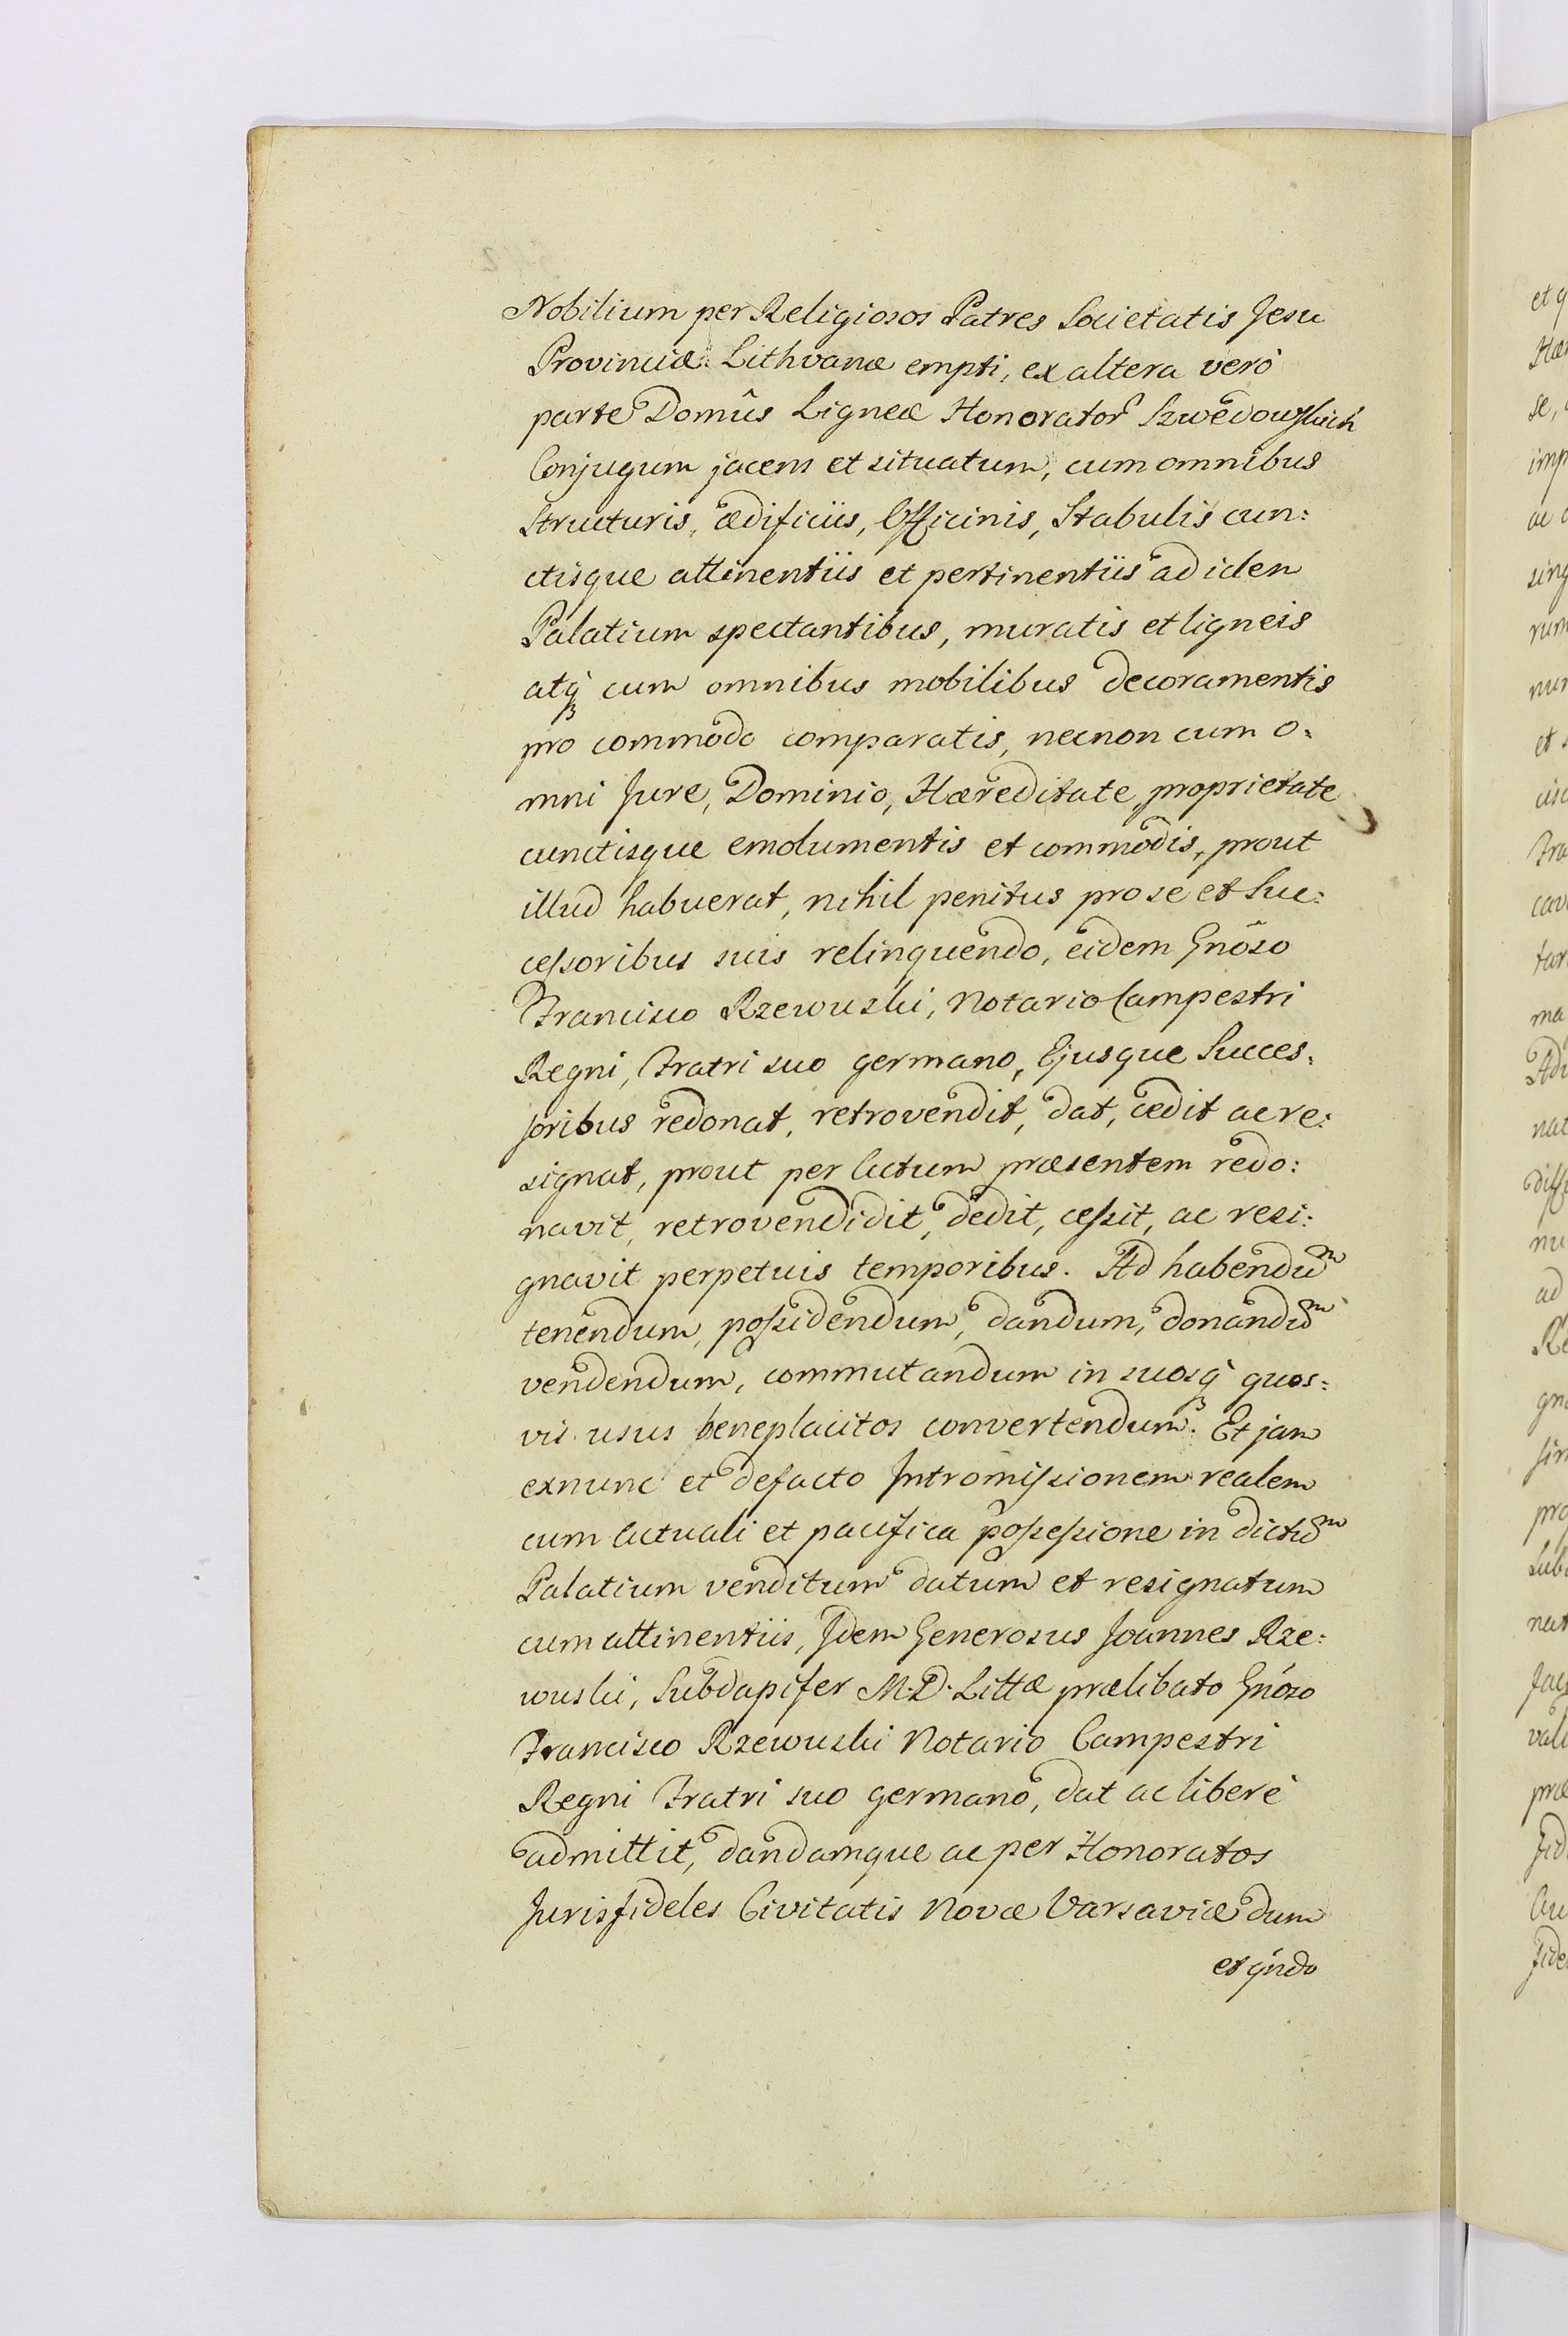 Nobilium per Religiosos Patres Societatis Jesu
Provinciæ Lithvanæ empti, ex altera verò
parte Domûs Ligneæ Honorator Szwedowskich
Conjugum jacens et situatum, cum omnibus
Structuris, ædificiis, Officinis, Stabulis cun:
ctisque attinentiis et pertinentiis ad idem
Palatium spectantibus, muratis et ligneis
atq3 cum omnibus mobilibus decoramentis
pro commodo comparatis, necnon cum o:
mni Jure, Dominio, Hæreditate, proprietate
cunctisque emolumentis et commodis, prout
illud habuerat, nihil penitus pro se et Suc:
cessoribus suis relinquendo, eidem Gnôso
Francisco Rzewuski, Notario Campestri
Regni, Fratri suo germano, Ejusque Succes:
soribus redonat, retrovendit, dat, cedit ac re:
signat, prout per Actum præsentem redo:
navit, retrovendidit, dedit, cessit, ac resi:
gnavit perpetuis temporibus. Ad habendum
tenendum, possidendum, dandum, donandum
vendendum, commutandum in suosq3 quos:
vis usus beneplacitos convertendum. Et jam
exnunc et defacto Intromissionem realem
cum actuali et pacifica possessione in dictum
Palatium venditum datum et resignatum
cum attinentiis, Idem Generosus Joannes Rze:
wuski, Subdapifer M. D. Littæ prælibato Gnôso
Francisco Rzewuski Notario Campestri
Regni Fratri suo germano, dat ac liberè
admittit, dandamque ac per Honoratos
Jurisfideles Civitatis Novæ Varsaviæ dum
et qndo